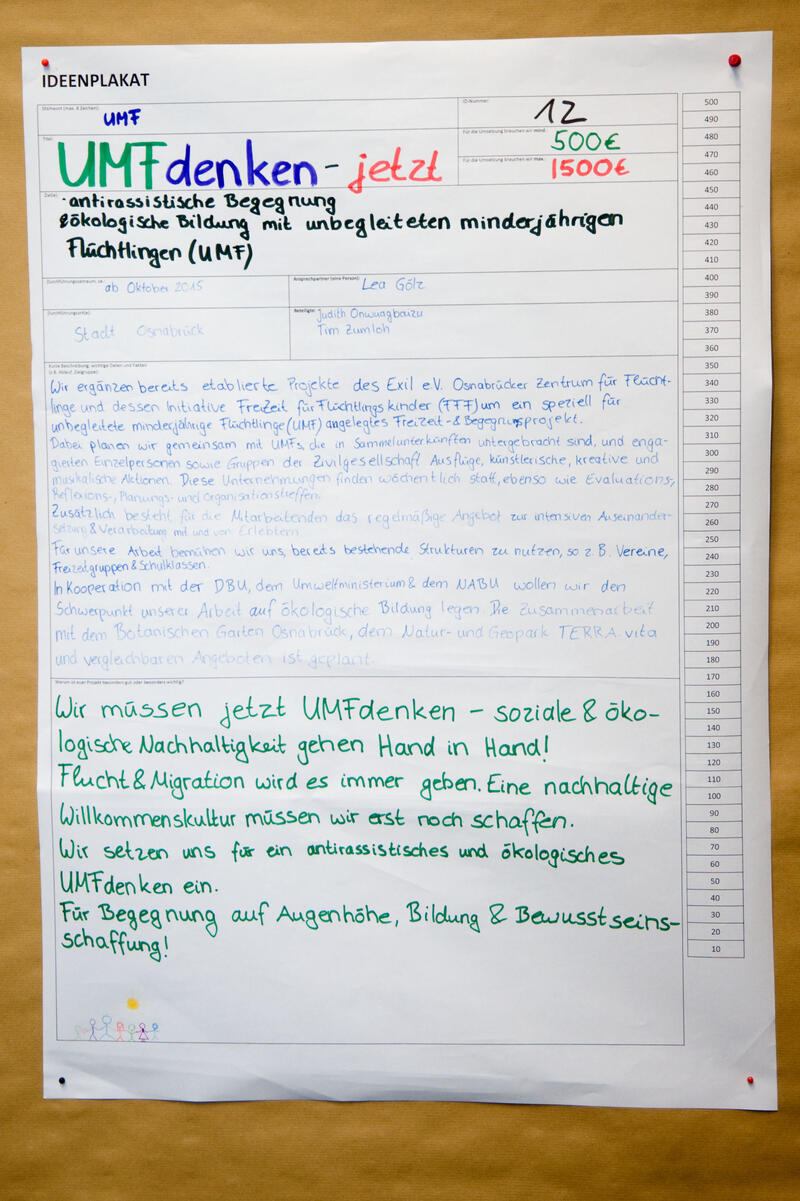 IDEENPLAKAT
Stichwort (max. 8 Zeichen):
UMF
ID-Nummer:
12
Titel:
UMFdenken - jetzt
Für die Umsetzung brauchen wir mind.
500€
Für die Umsetzung brauchen wir max.
1500€
Ziel(e):
· antirassistische Begegnung
& ökologische Bildung mit unbegleiteten minderjährigen
Flüchtlingen (UMF)
Durchführungszeitraum, ca.
ab Oktober 2015
Ansprechpartner (eine Person):
Lea Gölz
Durchführungsort(e):
Stadt Osnabrück
Beteiligte:
Judith Onwuagbaizu
Tim Zumloh
Kurze Beschreibung, wichtige Daten und Fakten
(z.B. Ablauf, Zielgruppe):
Wir ergänzen bereits etablierte Projekte des Exil e.V. Osnabrücker Zentrum für Flücht-
linge und dessen Initiative Freizeit für Flüchtlingskinder (FFF) um ein speziell für
unbegleitete minderjährige Flüchtlinge (UMF) angelegtes Freizeit- & Begegnungsprojekt.
Dabei planen wir gemeinsam mit UMFs, die in Sammelunterkünften untergebracht sind, und enga-
gierten Einzelpersonen sowie Gruppen der Zivilgesellschaft Ausflüge, künstlerische, kreative und
musikalische Aktionen. Diese Unternehmungen finden wöchentlich statt, ebenso wie Evaluations-,
Reflexions-, Planungs- und Organisationstreffen.
Zusätzlich besteht für die Mitarbeitenden das regelmäßige Angebot zur intensiven Auseinander-
setzung & Verarbeitung mit und von Erlebtem.
Für unsere Arbeit bemühen wir uns, bereits bestehende Strukturen zu nutzen, so z.B. Vereine,
Freizeitgruppen & Schulklassen.
In Kooperation mit der DBU, dem Umweltministerium & dem NABU wollen wir den
Schwerpunkt unserer Arbeit auf ökologische Bildung legen. Die Zusammenarbeit
mit dem Botanischen Garten Osnabrück, dem Natur- und Geopark TERRA.vita
und vergleichbaren Angeboten ist geplant.
Warum ist euer Projekt besonders gut oder besonders wichtig?
Wir müssen jetzt UMFdenken - soziale & öko-
logische Nachhaltigkeit gehen Hand in Hand!
Flucht & Migration wird es immer geben. Eine nachhaltige
Willkommenskultur müssen wir erst noch schaffen.
Wir setzen uns für ein antirassistisches und ökologisches
UMFdenken ein.
Für Begegnung auf Augenhöhe, Bildung & Bewusstseins-
schaffung!
500
490
480
470
460
450
440
430
420
410
400
390
380
370
360
350
340
330
320
310
300
290
280
270
260
250
240
230
220
210
200
190
180
170
160
150
140
130
120
110
100
90
80
70
60
50
40
30
20
10